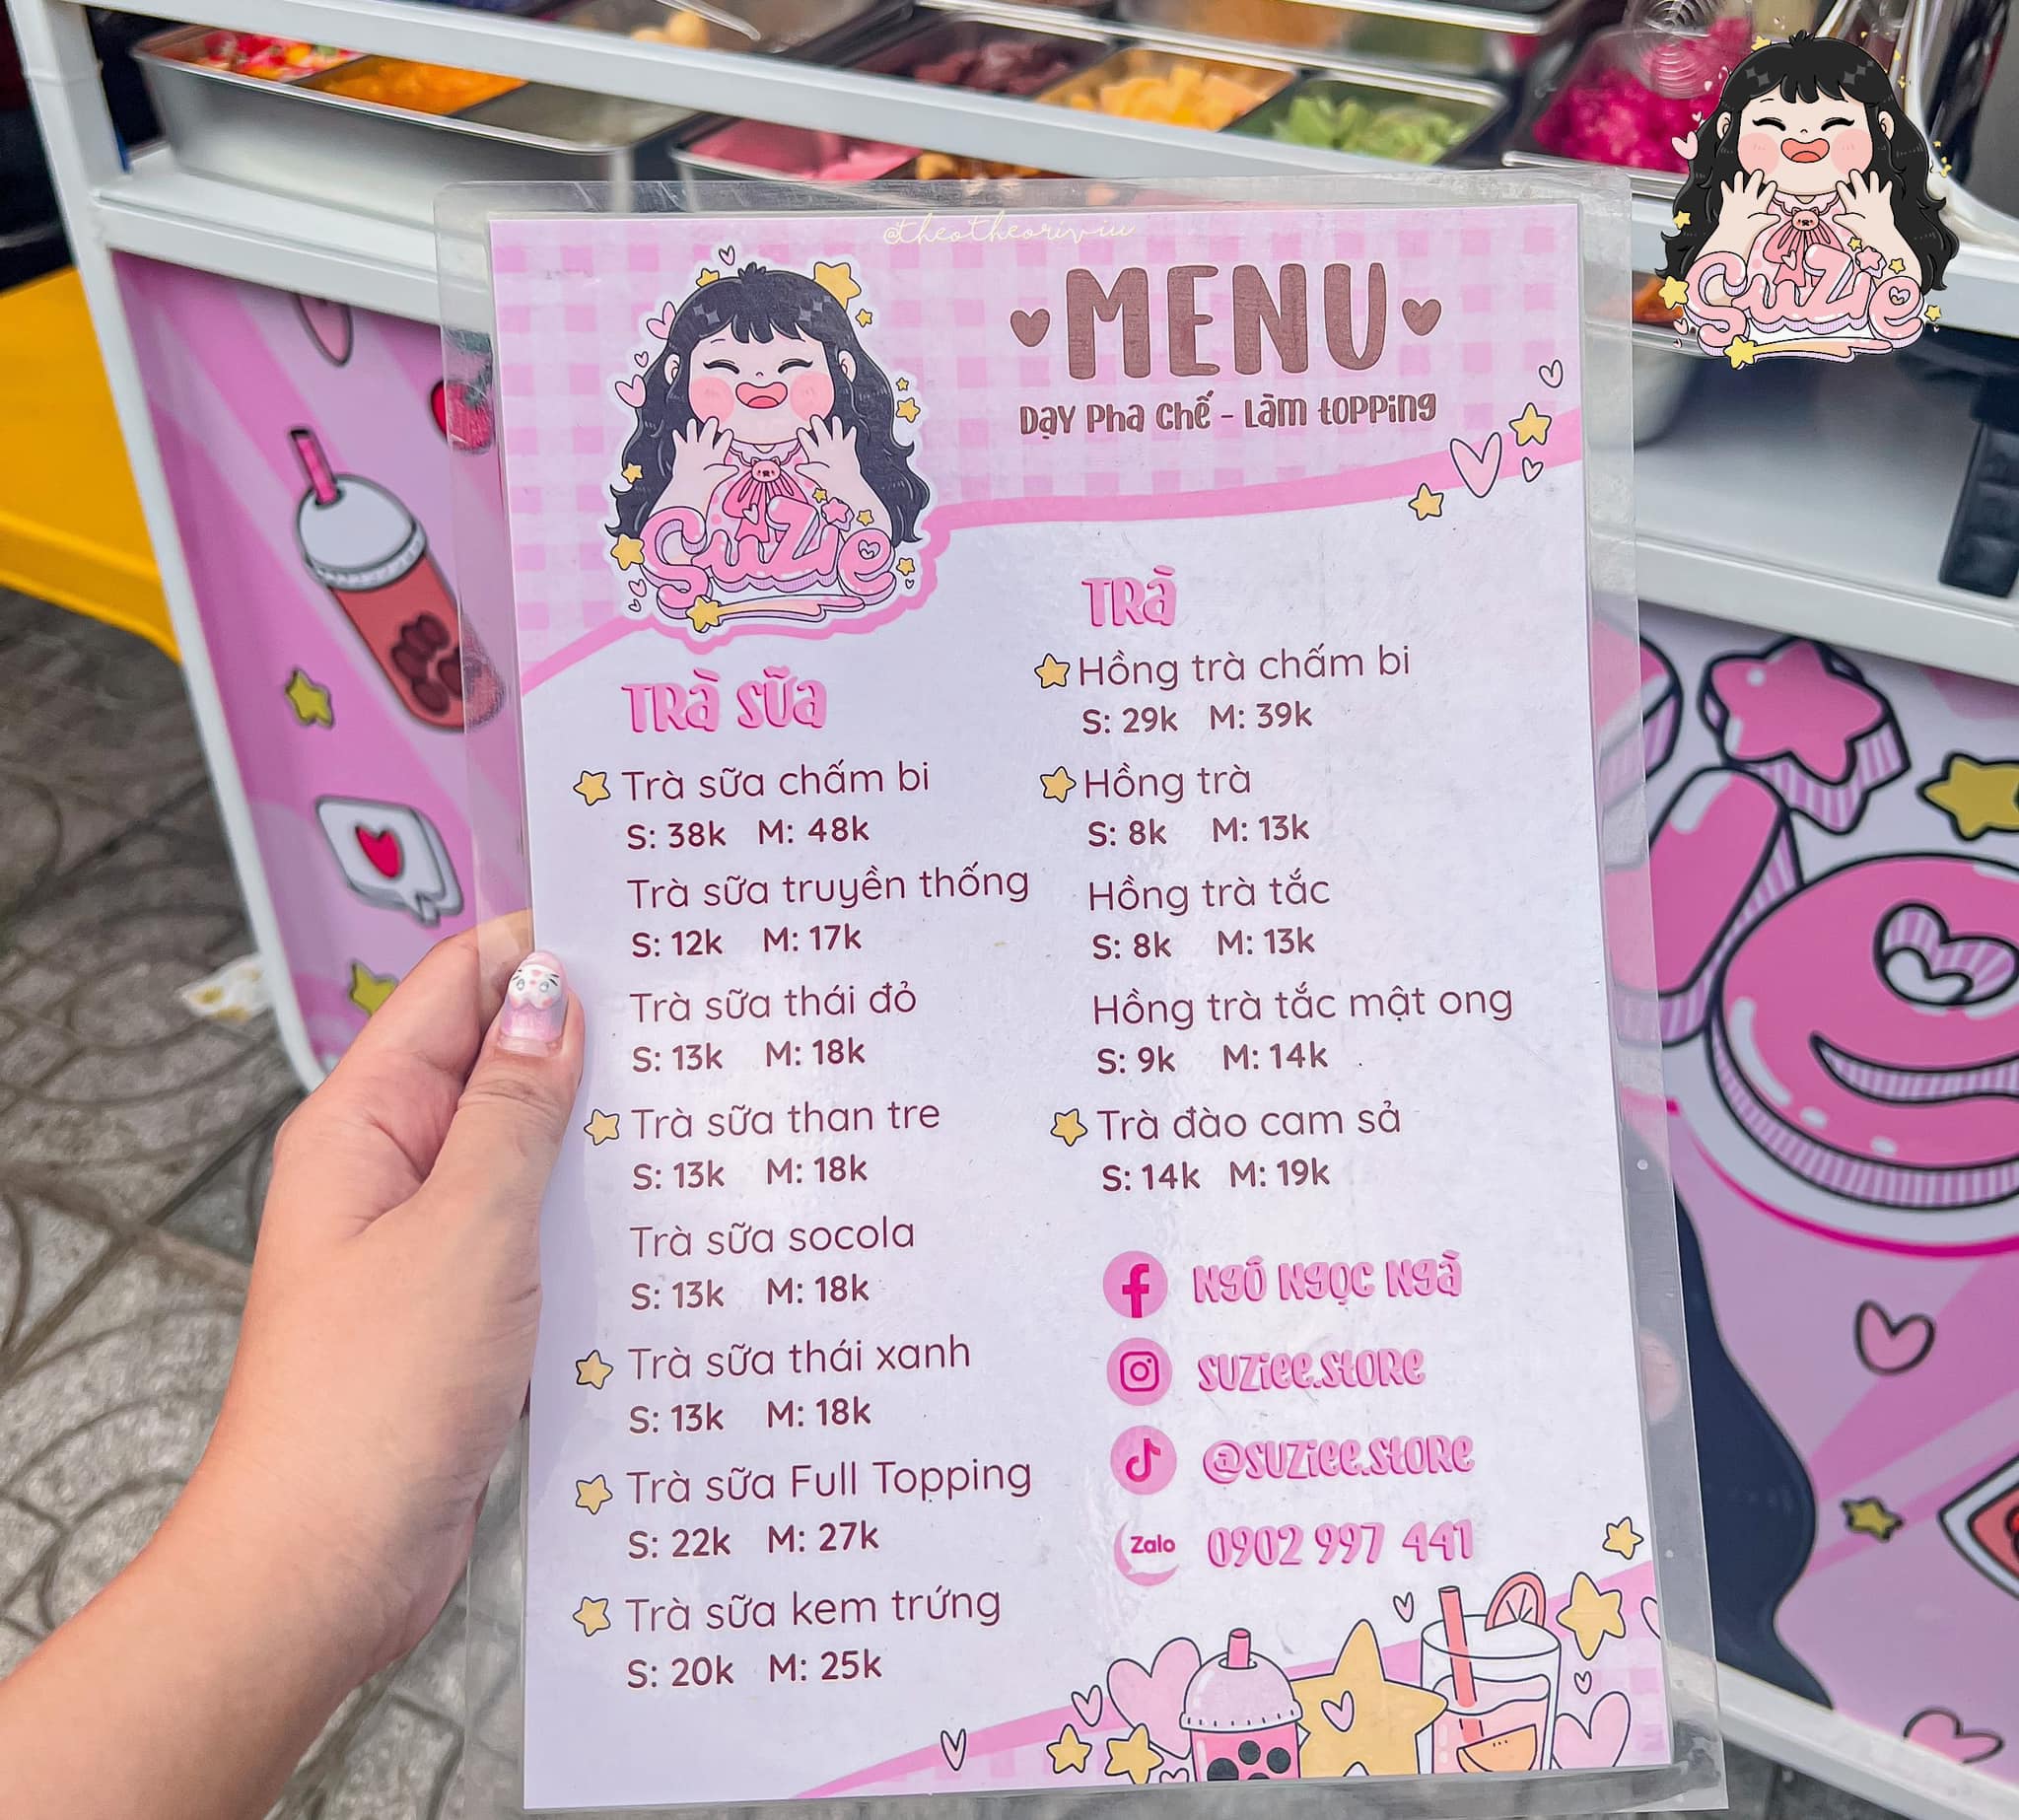 @theotheoriviu
Suzie
MENU
Dạy Pha Chế - Làm topping
Suzie
TRÀ SỮA
Trà sữa chấm bi
S: 38k M: 48k
Trà sữa truyền thống
S: 12k M: 17k
Trà sữa thái đỏ
S: 13k M: 18k
Trà sữa than tre
S: 13k M: 18k
Trà sữa socola
S: 13k M: 18k
Trà sữa thái xanh
S: 13k M: 18k
Trà sữa Full Topping
S: 22k M: 27k
Trà sữa kem trứng
S: 20k M: 25k
TRÀ
Hồng trà chấm bi
S: 29k M: 39k
Hồng trà
S: 8k M: 13k
Hồng trà tắc
S: 8k M: 13k
Hồng trà tắc mật ong
S: 9k M: 14k
Trà đào cam sả
S: 14k M: 19k
Ngô Ngọc Ngà
suziee.store
@suziee.store
Zalo 0902 997 441